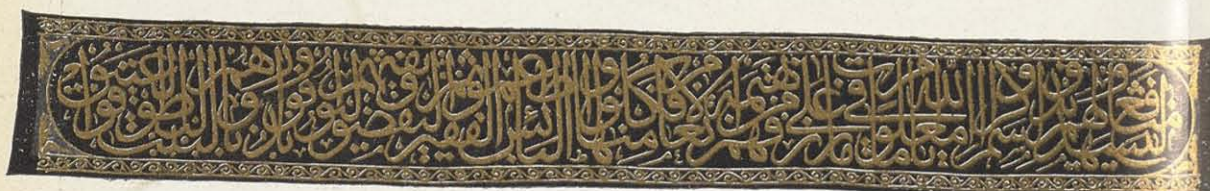 ليشهدوا منافع لهم ويذكروا اسم الله في ايام معلومات على ما رزقهم من بهيمة الانعام فكلوا منها واطعموا البائس الفقير ثم ليقضوا تفثهم وليوفوا نذورهم وليطوفوا بالبيت العتيق